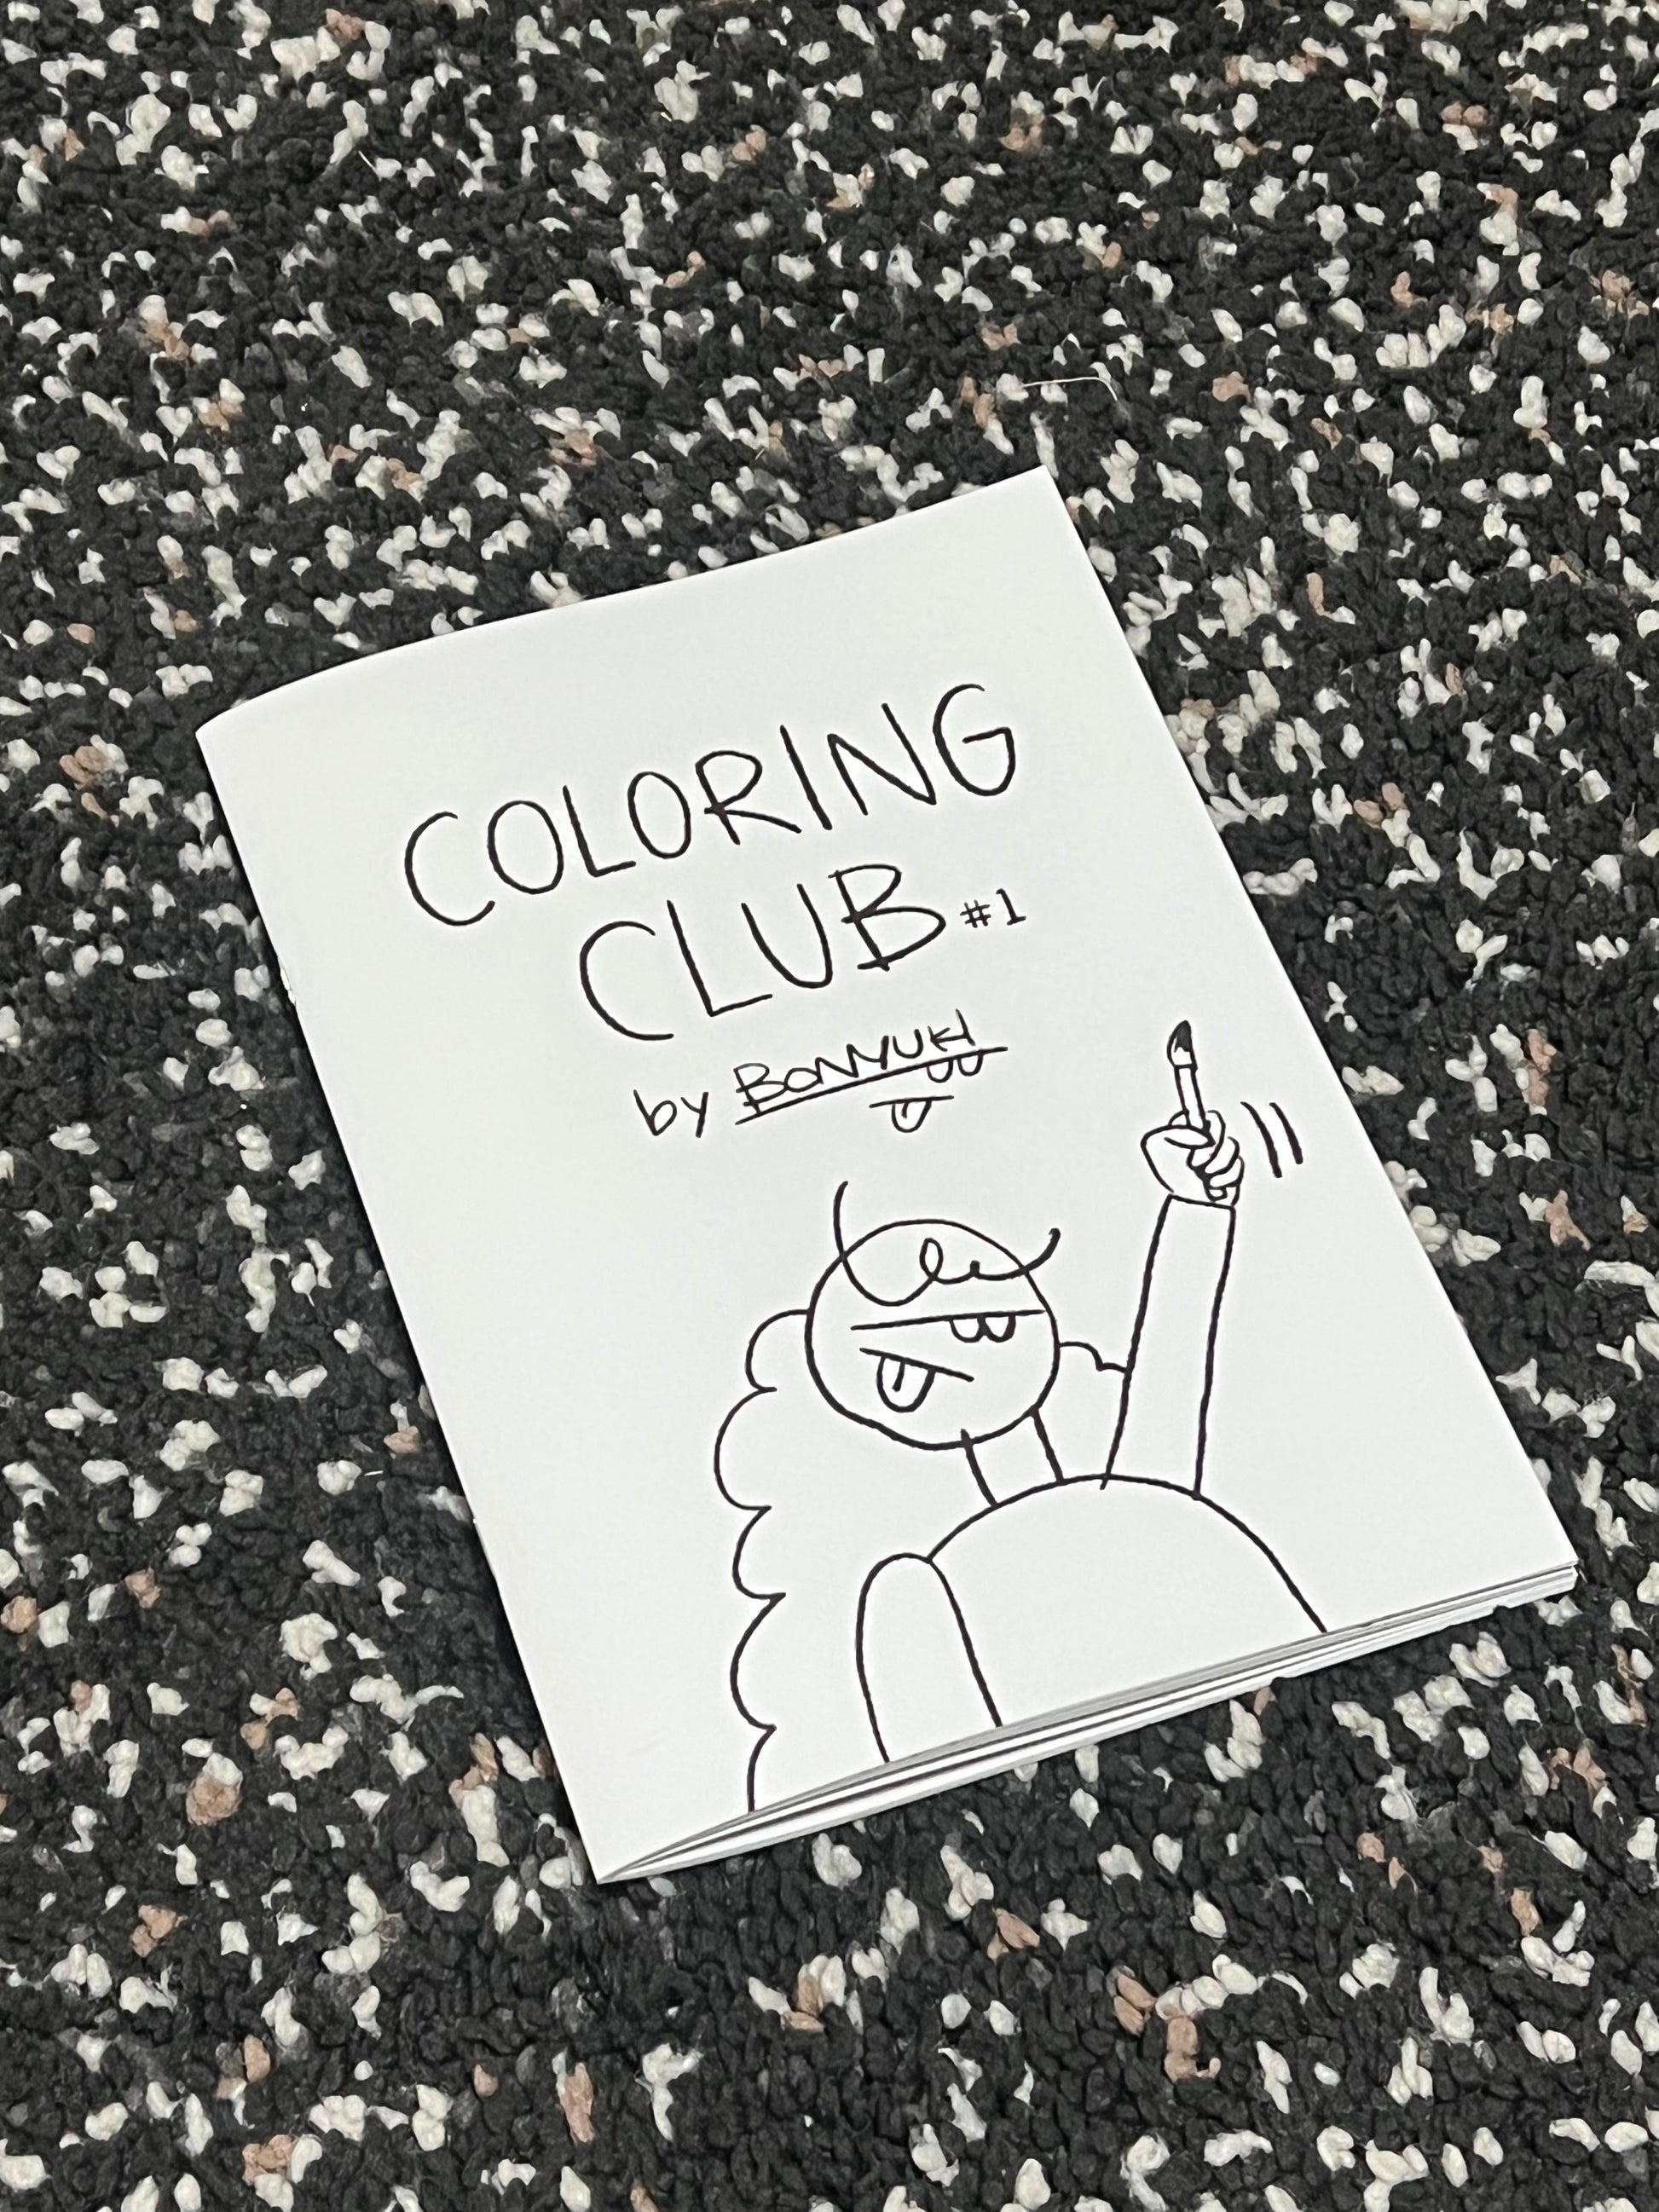 COLORING
CLUB #1
by BONYUKI